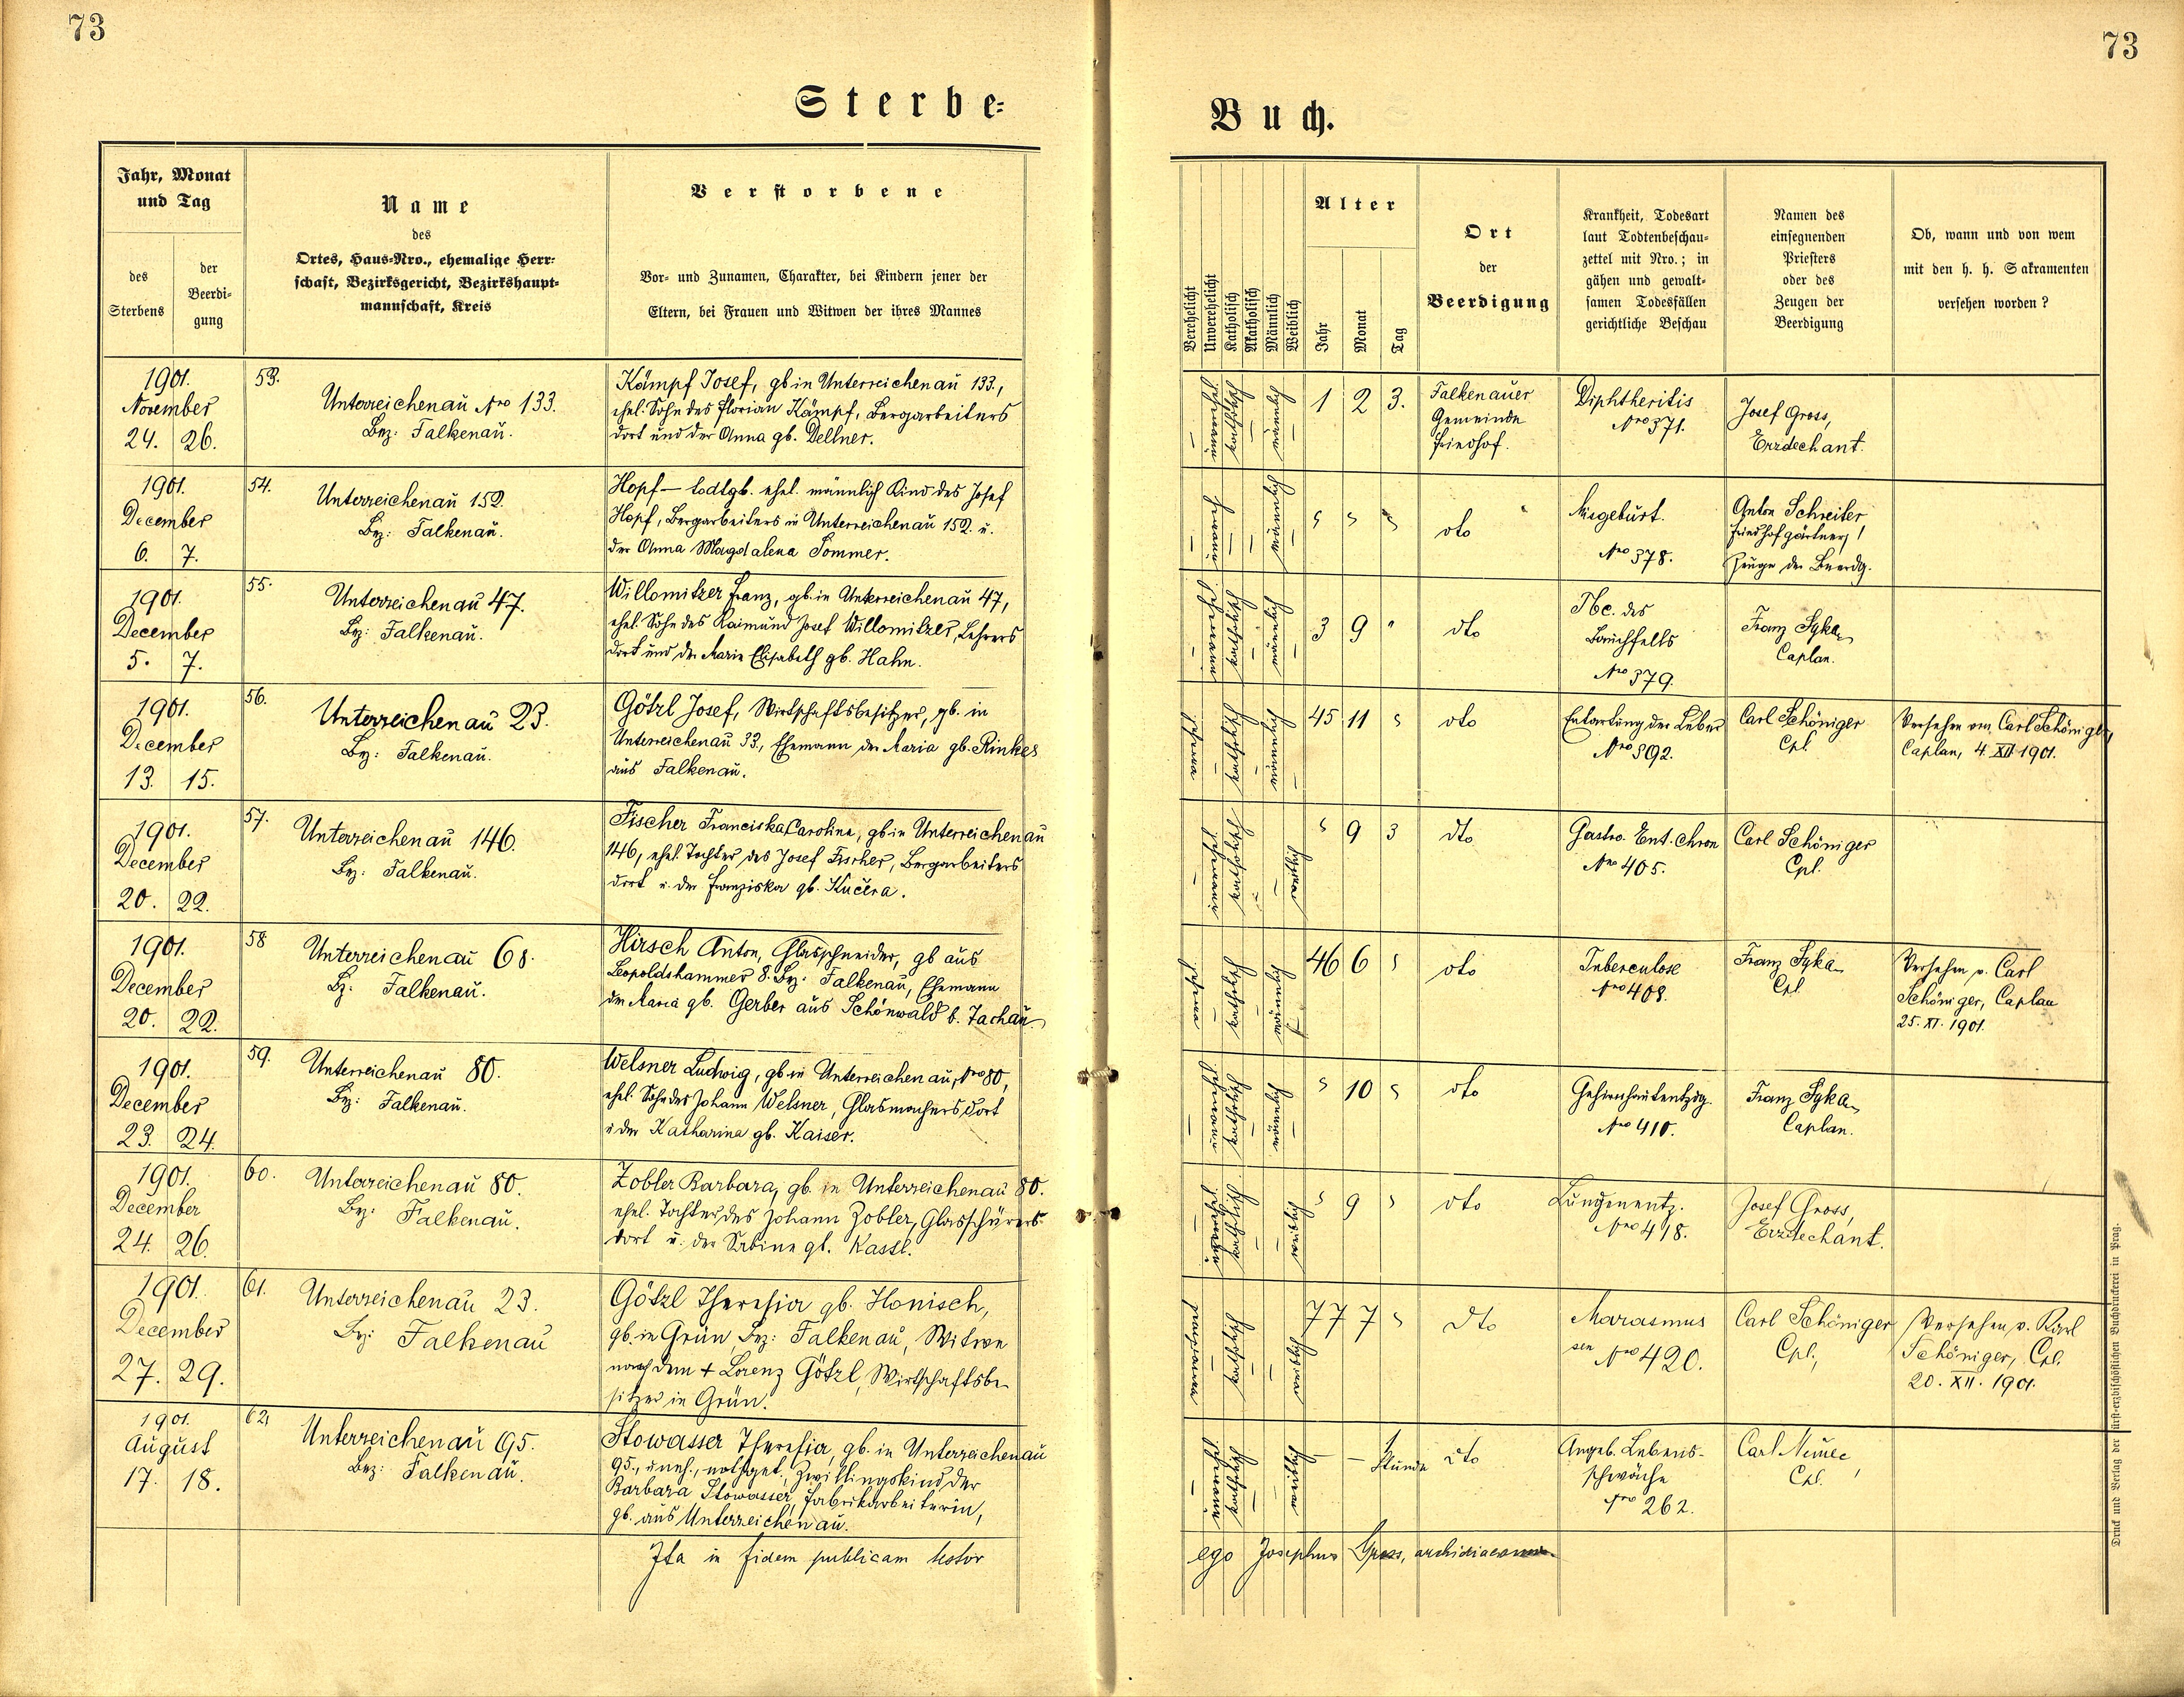 73
73
Sterbe-
Buch.
Jahr, Monat
und Tag
des
Sterbens
der
Beerdi-
gung
Name
des
Ortes, Haus-Nro., ehemalige Herr-
schaft, Bezirksgericht, Bezirkshaupt-
mannschaft, Kreis
Verstorbene
Vor- und Zunamen, Charakter, bei Kindern jener der
Eltern, bei Frauen und Witwen der ihres Mannes
Verehelicht
Unverehelicht
Katholisch
Akatholisch
Männlich
Weiblich
Alter
Jahr
Monat
Tag
Ort
der
Beerdigung
Krankheit, Todesart
laut Todtenbeschau-
zettel mit Nro.; in
gähen und gewalt-
samen Todesfällen
gerichtliche Beschau
Namen des
einsegnenden
Priesters
oder des
Zeugen der
Beerdigung
Ob, wann und von wem
mit den h. h. Sakramenten
versehen worden?
1901.
November
24. 26.
53.
Unterreichenau Nro 133.
Bez: Falkenau.
Kämpf Josef, gb in Unterreichenau 133,
ehel. Sohn des Florian Kämpf, Bergarbeiters
dort und der Anna gb. Dellner.
katholisch
männlich
1 2 3.
Falkenauer
Gemeinde
friedhof.
Diphtheritis
Nro 371.
Josef Gross,
Erzdechant.
1901.
December
6. 7.
54.
Unterreichenau 152.
Bez: Falkenau.
Hopf — todtgb. ehel. männlich Kind des Josef
Hopf, Bergarbeiters in Unterreichenau 152. u.
der Anna Magdalena Sommer.
männlich
dto
Misgeburt.
Nro 378.
Anton Schreiter
Friedhofgärtner,
Zeuge der Beerdg.
1901.
December
5. 7.
55.
Unterreichenau 47.
Bez: Falkenau.
Willomitzer Franz, gb. in Unterreichenau 47,
ehel. Sohn des Raimund Josef Willomitzer, Lehrers
dort und der Marie Elisabeth gb. Hahn.
katholisch
männlich
3 9 "
dto
Tbc. des
Bauchfells
Nro 379.
Franz Syka,
Caplan.
1901.
December
13. 15.
56.
Unterreichenau 23.
Bez: Falkenau.
Götzl Josef, Wirtschaftsbesitzer, gb. in
Unterreichenau 33, Ehemann der Maria gb. Rinkes
aus Falkenau.
katholisch
männlich
45 11
dto
Entartung der Leber
Nro 392.
Carl Schöniger
Cpl
Versehen von Carl Schöniger,
Caplan, 4. XII 1901.
1901.
December
20. 22.
57.
Unterreichenau 146.
Bez: Falkenau.
Fischer Franciska Carolina, gb in Unterreichenau
146, ehel. Tochter des Josef Fischer, Bergarbeiters
dort u. der Franziska gb. Kučera.
katholisch
weiblich
9 3
dto
Gastro. Ent. chron
Nro 405.
Carl Schöniger
Cpl.
1901.
December
20. 22.
58
Unterreichenau 68.
Bz: Falkenau.
Hirsch Anton, Glasschneider, gb aus
Leopoldshammer 8. Bez: Falkenau, Ehemann
der Maria gb. Gerber aus Schönwald b. Tachau
katholisch
männlich
46 6
dto
Tuberculose
Nro 408.
Franz Syka
Cpl.
Versehen v. Carl
Schöniger, Caplan
25. XI. 1901.
1901.
December
23. 24.
59.
Unterreichenau 80.
Bez: Falkenau.
Welsner Ludwig, gb in Unterreichenau, Nro 80,
ehel. Sohn des Johann Welsner, Glasmachers dort
u der Katharina gb. Kaiser.
katholisch
männlich
10
dto
Gehirnhautentzdg.
Nro 410.
Franz Syka,
Caplan.
1901.
December
24. 26.
60.
Unterreichenau 80.
Bez: Falkenau.
Zobler Barbara, gb. in Unterreichenau 80.
ehel. Tochter des Johann Zobler, Glasschürers
dort u. der Sabina gb. Kassl.
katholisch
weiblich
9
dto
Lungenentz.
Nro 418.
Josef Gross,
Erzdechant.
1901.
December
27. 29.
61.
Unterreichenau 23.
Bez: Falkenau
Götzl Theresia gb. Honisch,
gb. in Grün, Bez: Falkenau, Witwe
nach dem + Lorenz Götzl, Wirtschaftsbe-
sitzer in Grün.
katholisch
weiblich
77 7
dto
Marasmus
sen Nro 420.
Carl Schöniger
Cpl.,
Versehen v. Karl
Schöniger, Cpl.
20. XII. 1901.
1901.
August
17. 18.
62.
Unterreichenau 95.
Bez: Falkenau.
Stowasser Theresia, gb. in Unterreichenau
95., uneh., nothget. Zwillingskind der
Barbara Stowasser, Fabrikarbeiterin,
gb. aus Unterreichenau.
katholisch
weiblich
— — 1
Stunde
dto
Angeb. Lebens-
schwäche
Nro 262.
Carl Němec,
Cpl.
Ita in fidem publicam testor
ego Josephus Gross, archidiaconus
Druck und Verlag der fürst-erzbischöflichen Buchdruckerei in Prag.